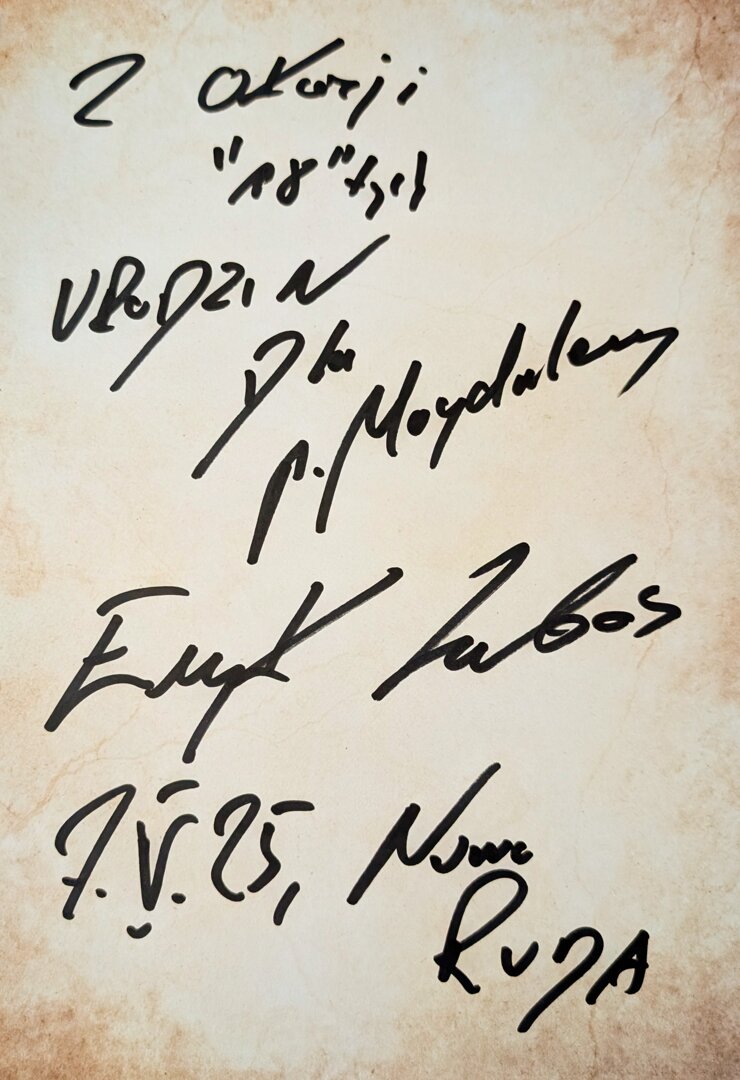 Z okazji
"18"tych
URODZIN
Dla
P. Magdaleny
Eryk Lubos
7.V.25, Nowa
RUDA